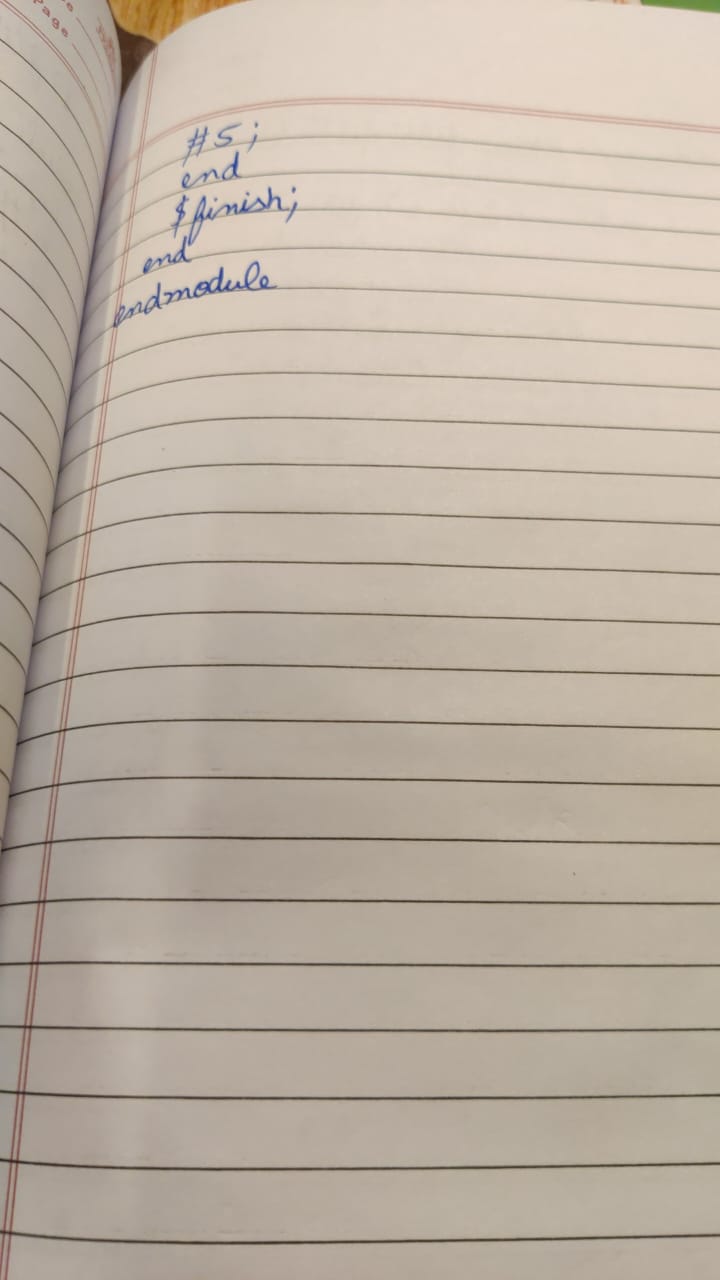 Page
#5;
end
$finish;
end
endmodule